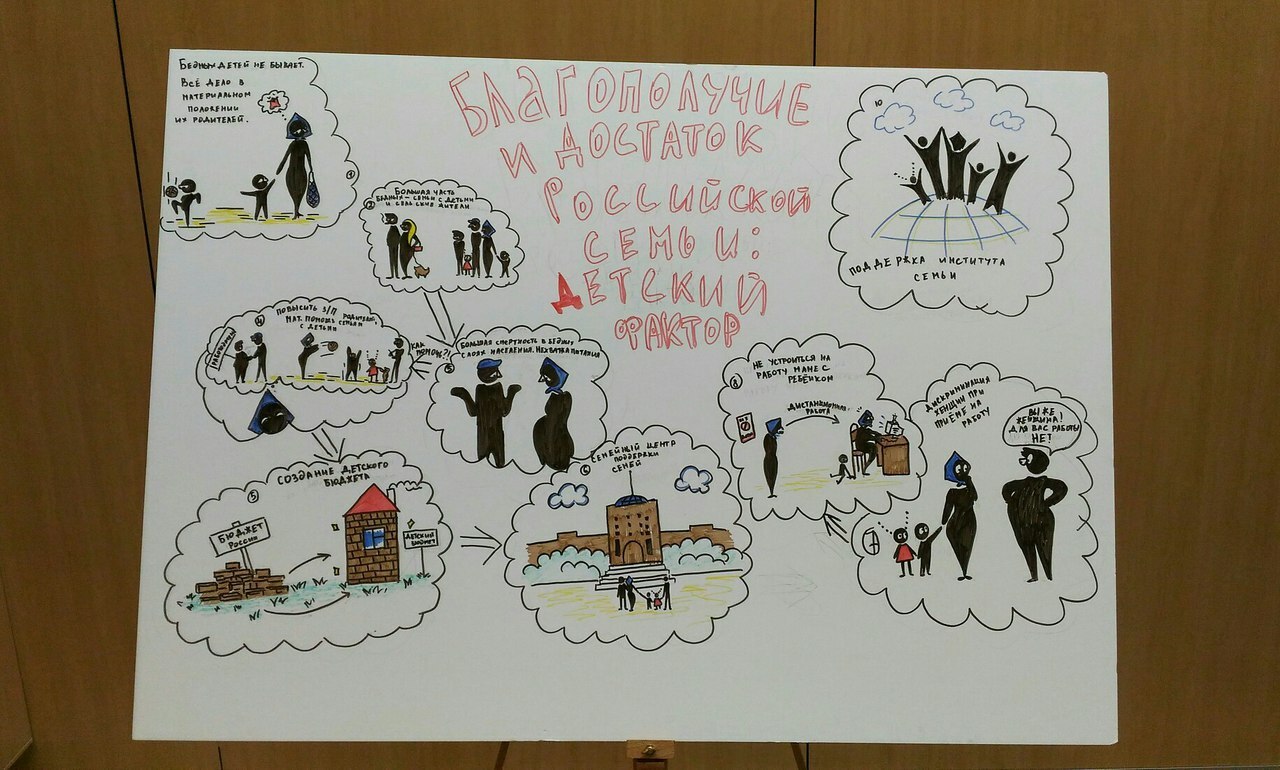 БЛАГОПОЛУЧИЕ
И ДОСТАТОК
РОССИЙСКОЙ
СЕМЬИ:
ДЕТСКИЙ
ФАКТОР
БЕДНЫХ ДЕТЕЙ НЕ БЫВАЕТ.
ВСЁ ДЕЛО В
МАТЕРИАЛЬНОМ
ПОЛОЖЕНИИ
ИХ РОДИТЕЛЕЙ.
1
2
БОЛЬШАЯ ЧАСТЬ
БЕДНЫХ – СЕМЬИ С ДЕТЬМИ
И СЕЛЬСКИЕ ЖИТЕЛИ.
БОЛЬШАЯ СМЕРТНОСТЬ В БЕДНЫХ
СЛОЯХ НАСЕЛЕНИЯ. НЕХВАТКА ПИТАНИЯ
КАК
ПОМОЧЬ?!
4
ПОВЫСИТЬ З/П РОДИТЕЛЯМ,
МАТ. ПОМОЩЬ СЕМЬЯМ
С ДЕТЬМИ
5
СОЗДАНИЕ ДЕТСКОГО
БЮДЖЕТА
БЮДЖЕТ
РОССИИ
ДЕТСКИЙ
БЮДЖЕТ
6
СЕМЕЙНЫЙ ЦЕНТР
ПОДДЕРЖКИ
СЕМЕЙ
ДИСКРИМИНАЦИЯ
ЖЕНЩИН ПРИ
ПРИЁМЕ НА
РАБОТУ
ВЫ ЖЕ
ЖЕНЩИНА!
ДЛЯ ВАС РАБОТЫ
НЕТ
8
НЕ УСТРОИТЬСЯ НА
РАБОТУ МАМЕ С
РЕБЁНКОМ
ДИСТАНЦИОННАЯ
РАБОТА
10
ПОДДЕРЖКА ИНСТИТУТА
СЕМЬИ